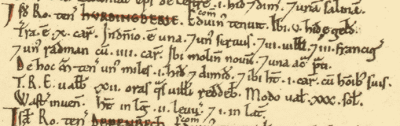 Isđ Ro. ten HURDINGBERIE. Eduin com tenuit. Ibi. v. hidæ geld.
Tra. ē. x. car. In dnio. ē una. 7 un seruus. 7 III. uilłi. 7 III. francig
7 un radman cū. IIII. car. Ibi molin nouū. 7 una ac p̃ti.
De hoc ꝏ ten un miles. I. hid 7 dimiđ. 7 ibi ht. I. car cū hoīb suis.
T.R.E. ualb. XII. oras qs uilłi reddeb. Modo ual. XXX. sol.
Wast inuen. Ht in lg. II. leuu. 7. I. in lat.
Isđ Ro. ten